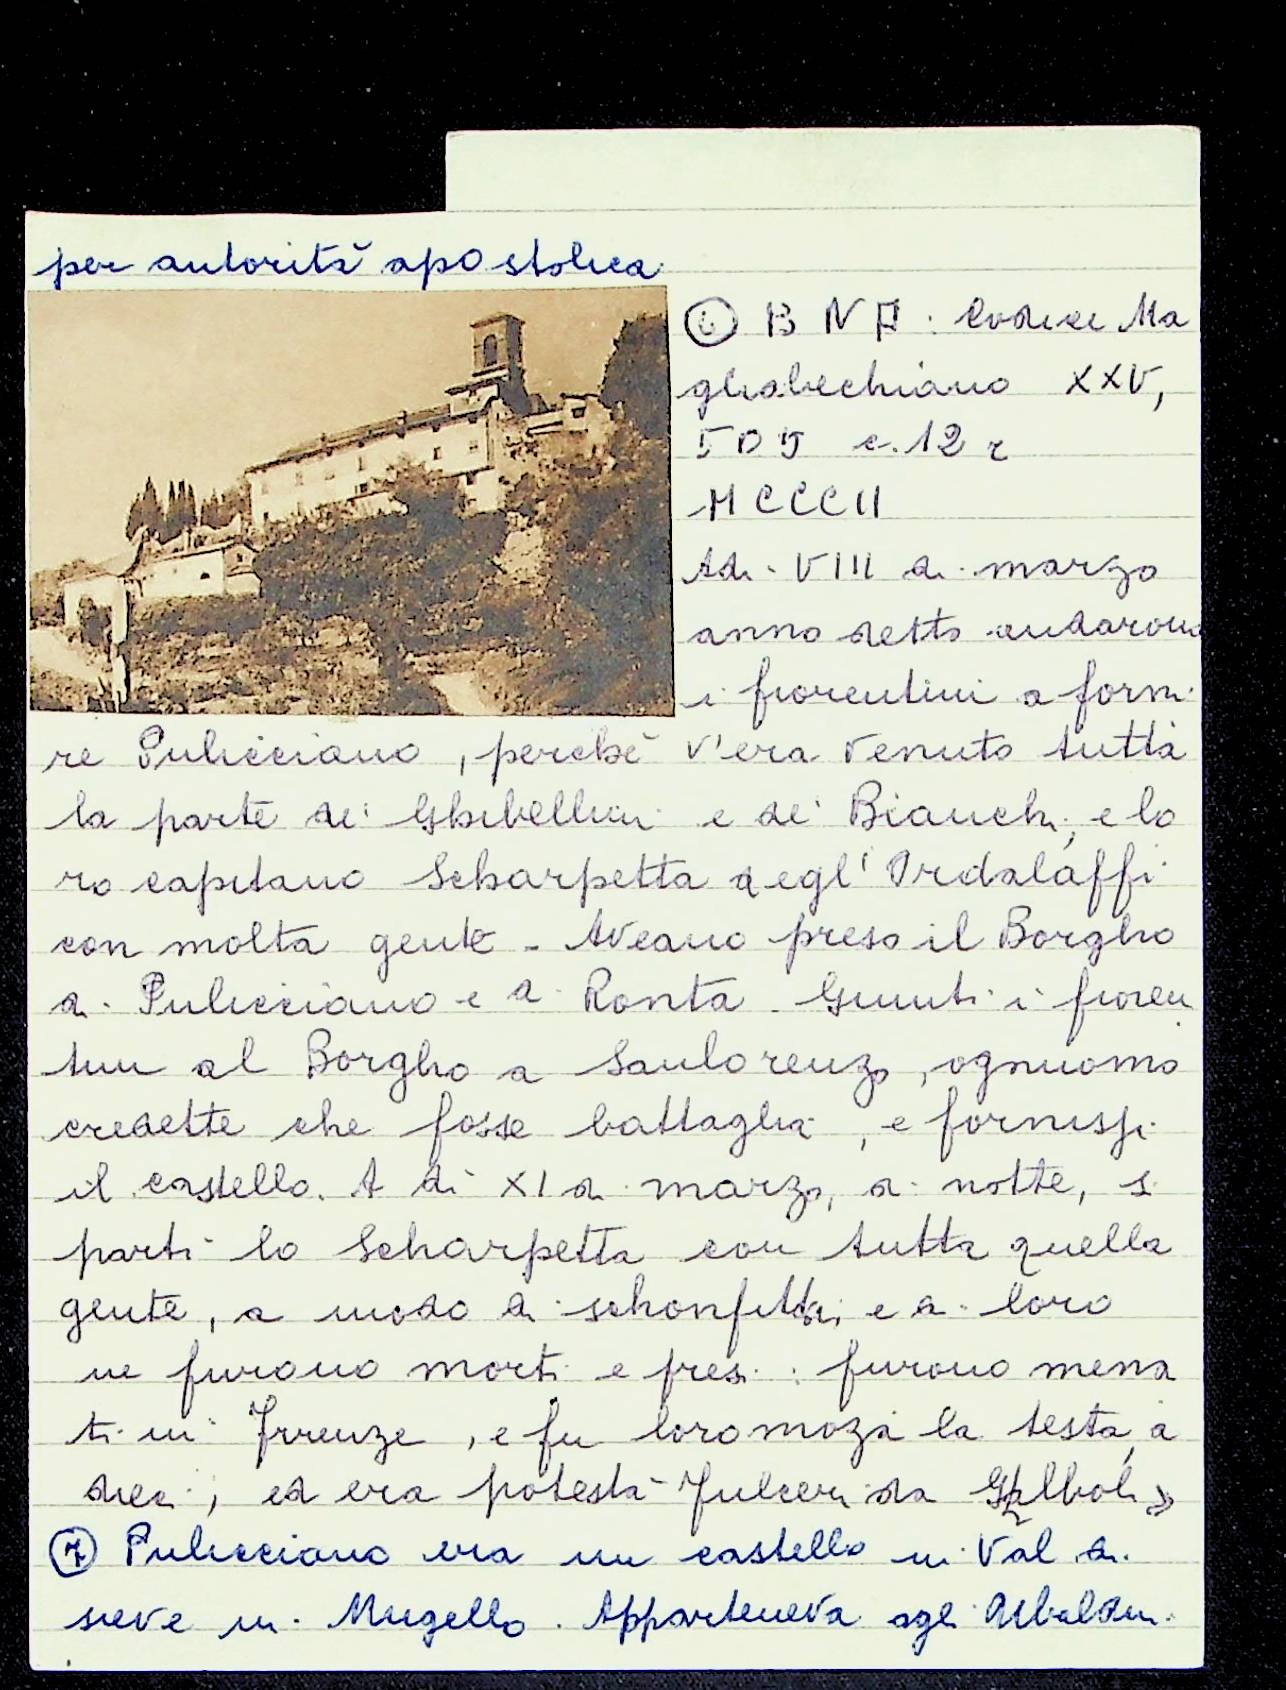 per autorità apostolica
⑥ B N F. Codice Ma
gliabechiano XXV,
505 c. 12 r
MCCCII
Adi VIII di marzo
anno detto andarono
i fiorentini a forni
re Pulicciano, perché v'era venuto tutta
la parte dei Ghibellini e dei Bianchi, e lo
ro capitano Scharpetta degl'Ordalaffi
con molta gente. Aveano preso il Borgho
a Pulicciano e a Ronta. Giunti i fioren
tini al Borgho a Sanlorenzo, ognuomo
credette che fosse battaglia, e fornissi
il castello. A dì XI di marzo, di notte, si
partì lo Scharpetta con tutta quella
gente, a modo di schonfitti, e di loro
ne furono morti e presi: furono mena
ti in Firenze, e fu loro moza la testa, a
dieci, ed era potestà Fulcieri da Chalboli »
⑦ Pulicciano era un castello in Val di
sieve in Mugello. Apparteneva agli Ubaldini.